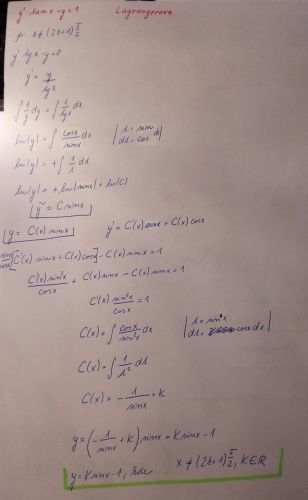 y' tan x - y = 1 Lagrangeova
p: x ≠ (2k+1) π/2
y' tg x - y = 0
y' = y/tg x
∫ 1/y dy = ∫ 1/tg x dx
ln|y| = ∫ cos x/sin x dx | t = sin x
dt = cos x dx |
ln|y| = + ∫ 1/t dt
ln|y| = + ln|sin x| + ln|C|
ỹ = C sin x
y = C(x) sin x y' = C'(x) sin x + C(x) cos x
sin x/cos x [C'(x) sin x + C(x) cos x] - C(x) sin x = 1
C'(x) sin²x/cos x + C(x) sin x - C(x) sin x = 1
C'(x) sin²x/cos x = 1
C(x) = ∫ cos x/sin²x dx | t = sin²x
dt = cos x dx |
C(x) = ∫ 1/t² dt
C(x) = - 1/sin x + K
y = (- 1/sin x + K) sin x = K sin x - 1
y = K sin x - 1, kde x ≠ (2k+1) π/2, K ∈ R